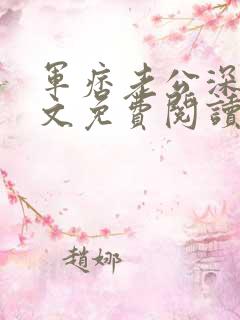 軍痞老公深
文免費閱讀
趙娜